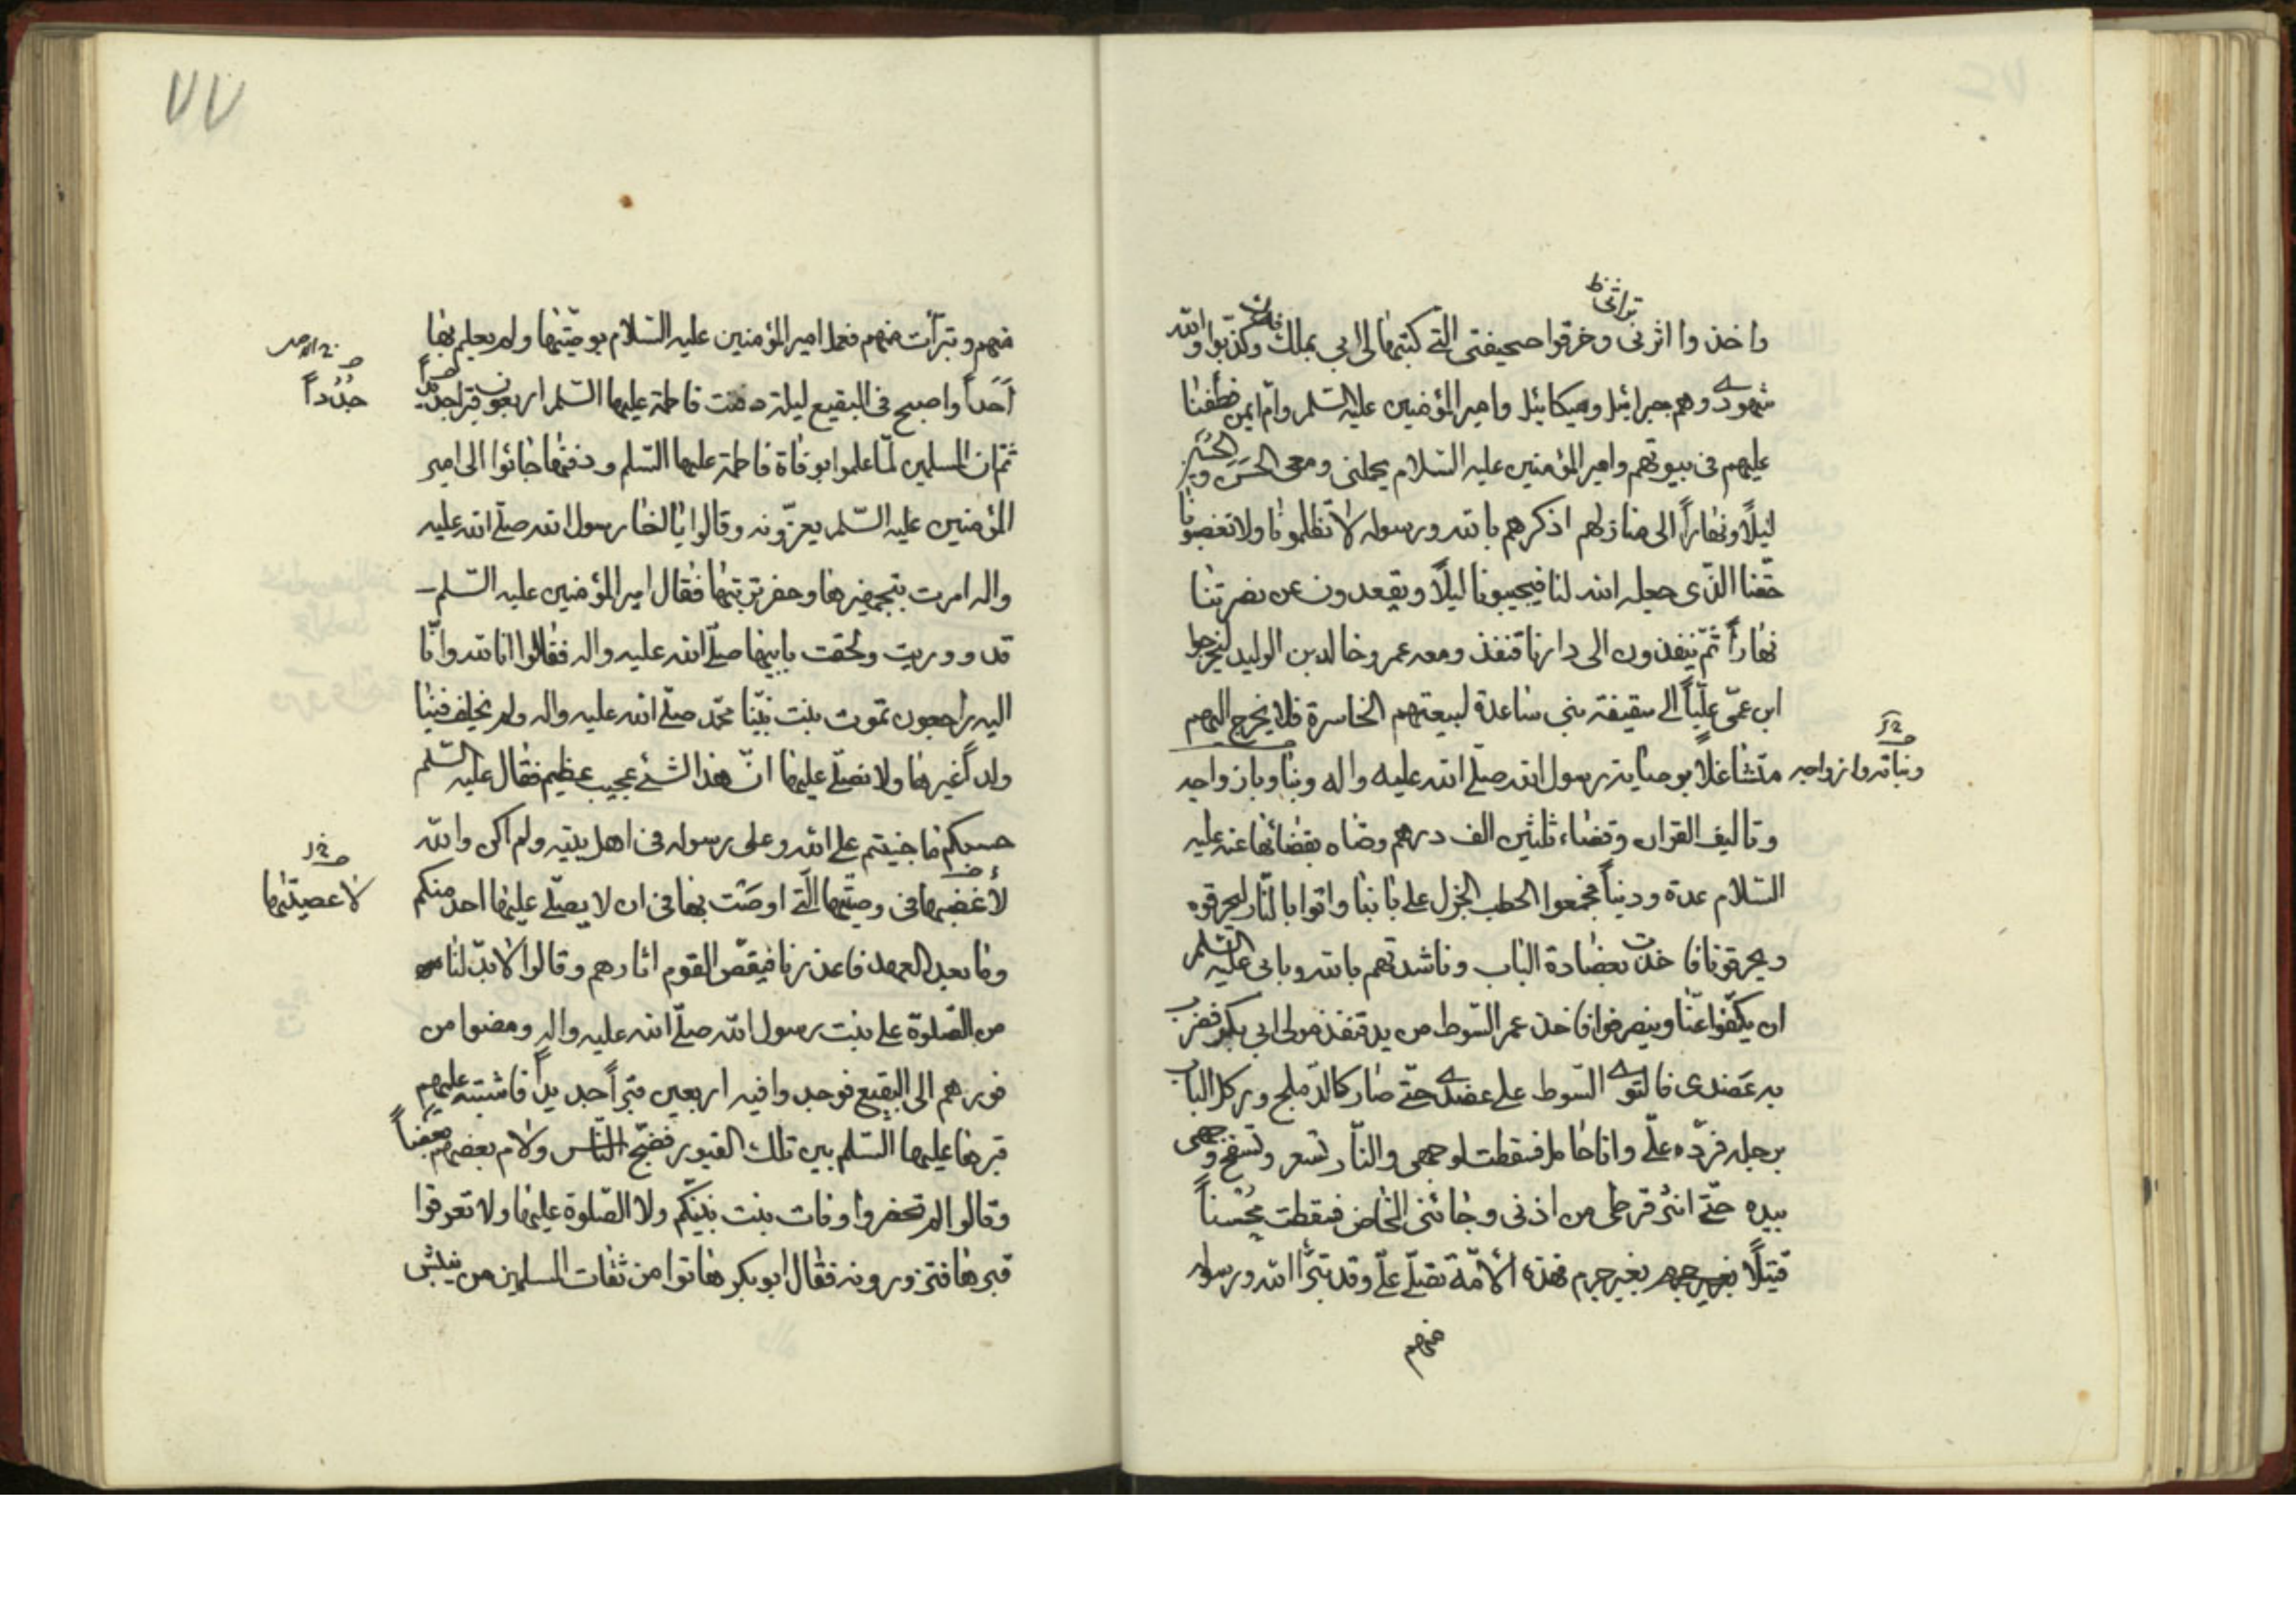 تراثی ظ
واخذوا اثرنی وخرقوا صحیفتی التے کتبتها لی ابی بملك فدك وکذبوا والله
شهودی وهم جبرائیل ومیکائیل وامیرالمؤمنین علیه السلم وام ایمن فطفنا
علیهم فی بیوتهم وامیرالمؤمنین علیه السلام یحملنی ومعی الحسن والحسین
لیلاً ونهاراً الی منازلهم اذکرهم بالله ورسوله لا تظلمونا ولا تغصبونا
حقنا الذی جعله الله لنا فیجیبونا لیلاً ویقعدون عن نصرتنا
نهاراً ثم ینفذون الی دارنا قنفذ ومعه عمر وخالد بن الولید لیخرجوا
ابن عمی علیاً الے سقیفة بنی ساعدة لبیعتهم الخاسرة فلا یخرج الیهم
متشاغلاً بوصایة رسول الله صلے الله علیه واله وبناوبازواجه
وبناته وازواجه
وتالیف القران وقضاء ثلثین الف درهم وصاه بقضائها عنه علیه
السلام عدة ودیناً فجمعوا الحطب الجزل علے بابنا واتوا بالنار لیحرقوه
ویحرقونا فاخذت بعضادة الباب وناشدتهم بالله وبابی علیه السلم
ان یکفوا عنا وینصرفوا فاخذ عمر السوط من ید قنفذ مولی ابی بکر فضرب
به عضدی فالتوی السوط علے عضدی حتے صار کالدملج ورکل الباب
برجله فرده علے وانا حامل فسقطت لوجهی والنار تسعر وتسفع وجهی
بیده حتے انثر قرطی من اذنی وجائنی المخاض فسقطت محسناً
قتیلاً بغیر جرم فهذه الامة تصلے علے وقد تبرأ الله ورسوله
منهم
۷۷
منهم وتبرأت منهم فعمل امیرالمؤمنین علیه السلام بوصیتها ولم یعلم بها
احداً واصبح فی البقیع لیلة دفنت فاطمة علیها السلم اربعون قبرا جدداً
جدداً
ثم ان المسلمین لما علموا بوفاة فاطمة علیها السلم ودفنها جائوا الی امیر
المؤمنین علیه السلم یعزونه وقالوا یا اخا رسول الله صلے الله علیه
واله امرت بتجهیزها وحفر تربتها فقال امیرالمؤمنین علیه السلم
قد ووریت ولحقت بابیها صلے الله علیه واله فقالوا انا لله وانا
الیه راجعون تموت بنت نبینا محمد صلے الله علیه واله ولم یخلف فینا
ولداً غیرها ولا نصلے علیها ان هذا لشئ عجیب عظیم فقال علیه السلم
حسبکم ما جنیتم علے الله وعلی رسوله فی اهل بیته ولم اکن والله
لاغضبها فی وصیتها التے اوصت بها فی ان لا یصلے علیها احد منکم
لاعصیتها
وما بعد العهد فاعذرنا فیقص القوم اثارهم وقالوا لا بد لنا
من الصلوة علے بنت رسول الله صلے الله علیه واله ومضوا من
فورهم الی البقیع فوجدوا فیه اربعین قبراً جدیداً فاشتبه علیهم
قبرها علیها السلم بین تلك القبور فضج الناس ولام بعضهم بعضاً
وقالوا لم تحضروا وفات بنت نبیکم ولا الصلوة علیها ولا تعرفوا
قبرها فتزورونه فقال ابو بکر هاتوا من ثقات المسلمین من ینبش